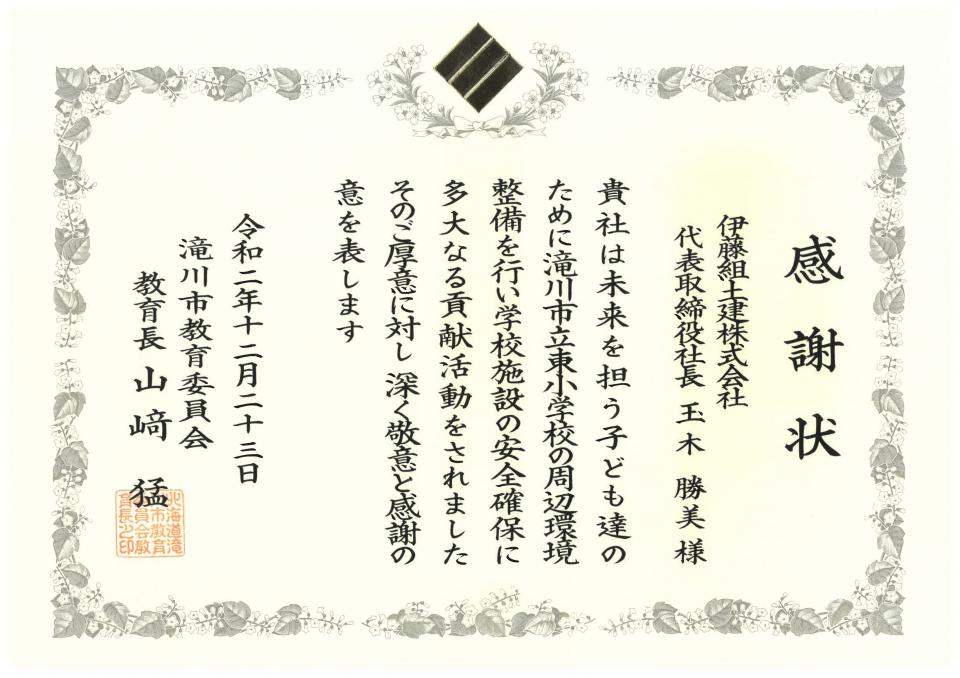 感謝状
伊藤組土建株式会社
代表取締役社長 玉木勝美様
貴社は未来を担う子ども達の
ために滝川市立東小学校の周辺環境
整備を行い学校施設の安全確保に
多大なる貢献活動をされました
そのご厚意に対し深く敬意と感謝の
意を表します
令和二年十二月二十三日
滝川市教育委員会
教育長 山﨑 猛
北海道滝
川市教育
委員会教
育長之印